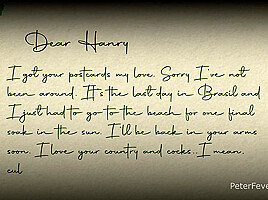 Dear Hanry
I got your postcards my love. Sorry I've not
been around. It's the last day in Brasil and
I just had to go to the beach for one final
soak in the sun. I'll be back in your arms
soon. I love your country and cocks.. I mean..
cul
PeterFeve